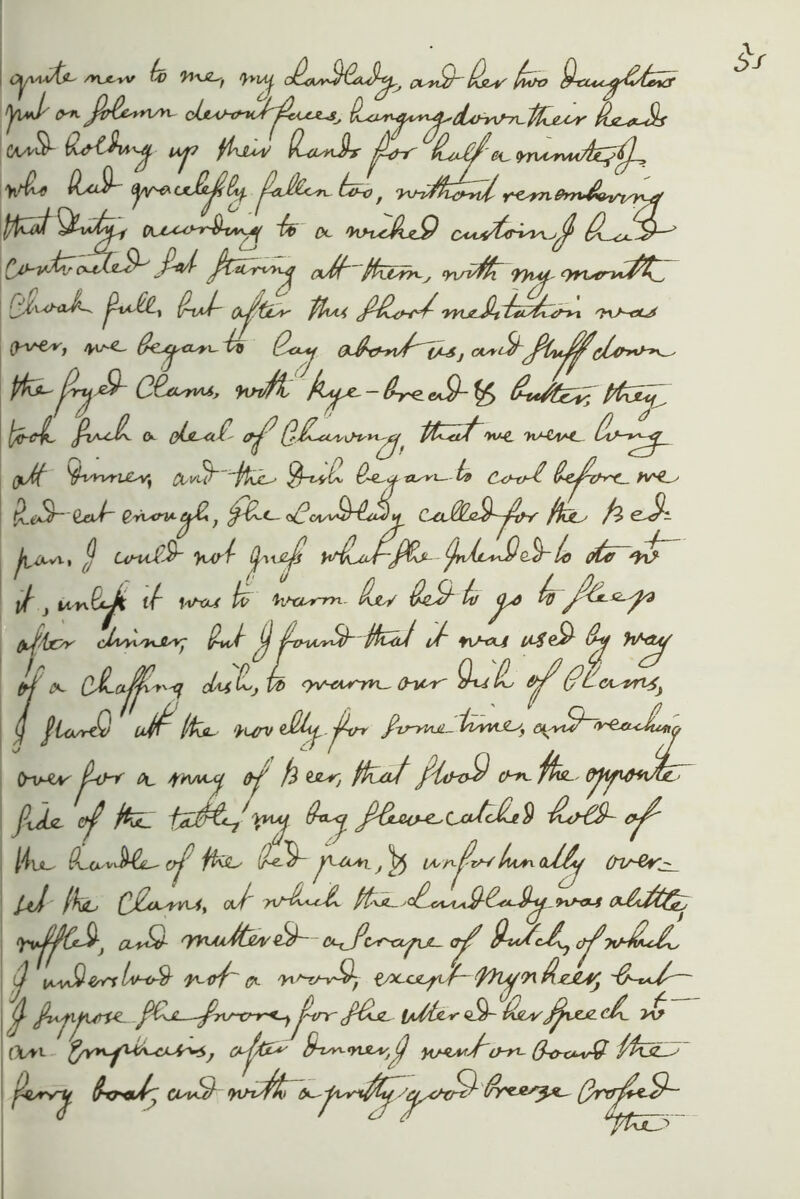 35
quite new to me, my LandLady, and her two Daughters
put on solemn devout faces, hanging down their heads
and holding up their hands for half a minute, I,
who had gracelessly fallen too, without remembering
that Duty, according to a wicked custom I had
Contracted sat staring att them, with my mouth
Choak full, but after this short meditation was
over, we began to Lay about us, and stuff down
the fryed Clams, with Rye-bread & butter, they
took such a deal of Chawing that we were Long
att Dinner, and the Dish began to cool before we
had eat enough, the LandLady called for the Bed-
pan, I could not guess what she Intended to do wt
it, unless it was to warm her bed to go to sleep
after dinner, but I found that it was used by way
of a Chaffing dish, to warm our Dish of Clams,
I stared att the novelty for some time, and reaching
over for a mug of Beer, that stood on the opposite
side of the table, my bag sleeve catched hold of
the handle of the bed pan, & unfortunatly over-
set the Clams, at which the LandLady was a little
ruffled, and muttered a scrape of Dutch, of which
I understood not a word, except Mynheer, but
I suppose she swore, for she uttered her speech wt
an Emphasis, after Dinner, I went on Board the
ferry boat, and with a pritty good breeze Crossed
the